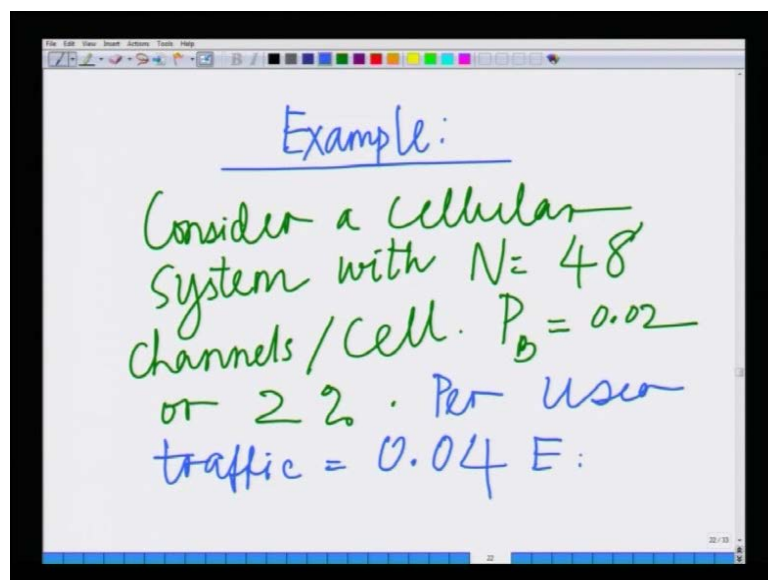 File Edit View Insert Actions Tools Help
B I
Example:
Consider a cellular
system with N= 48
channels/cell. P_B = 0.02
or 2%. Per User
traffic = 0.04 E:
22/33
22